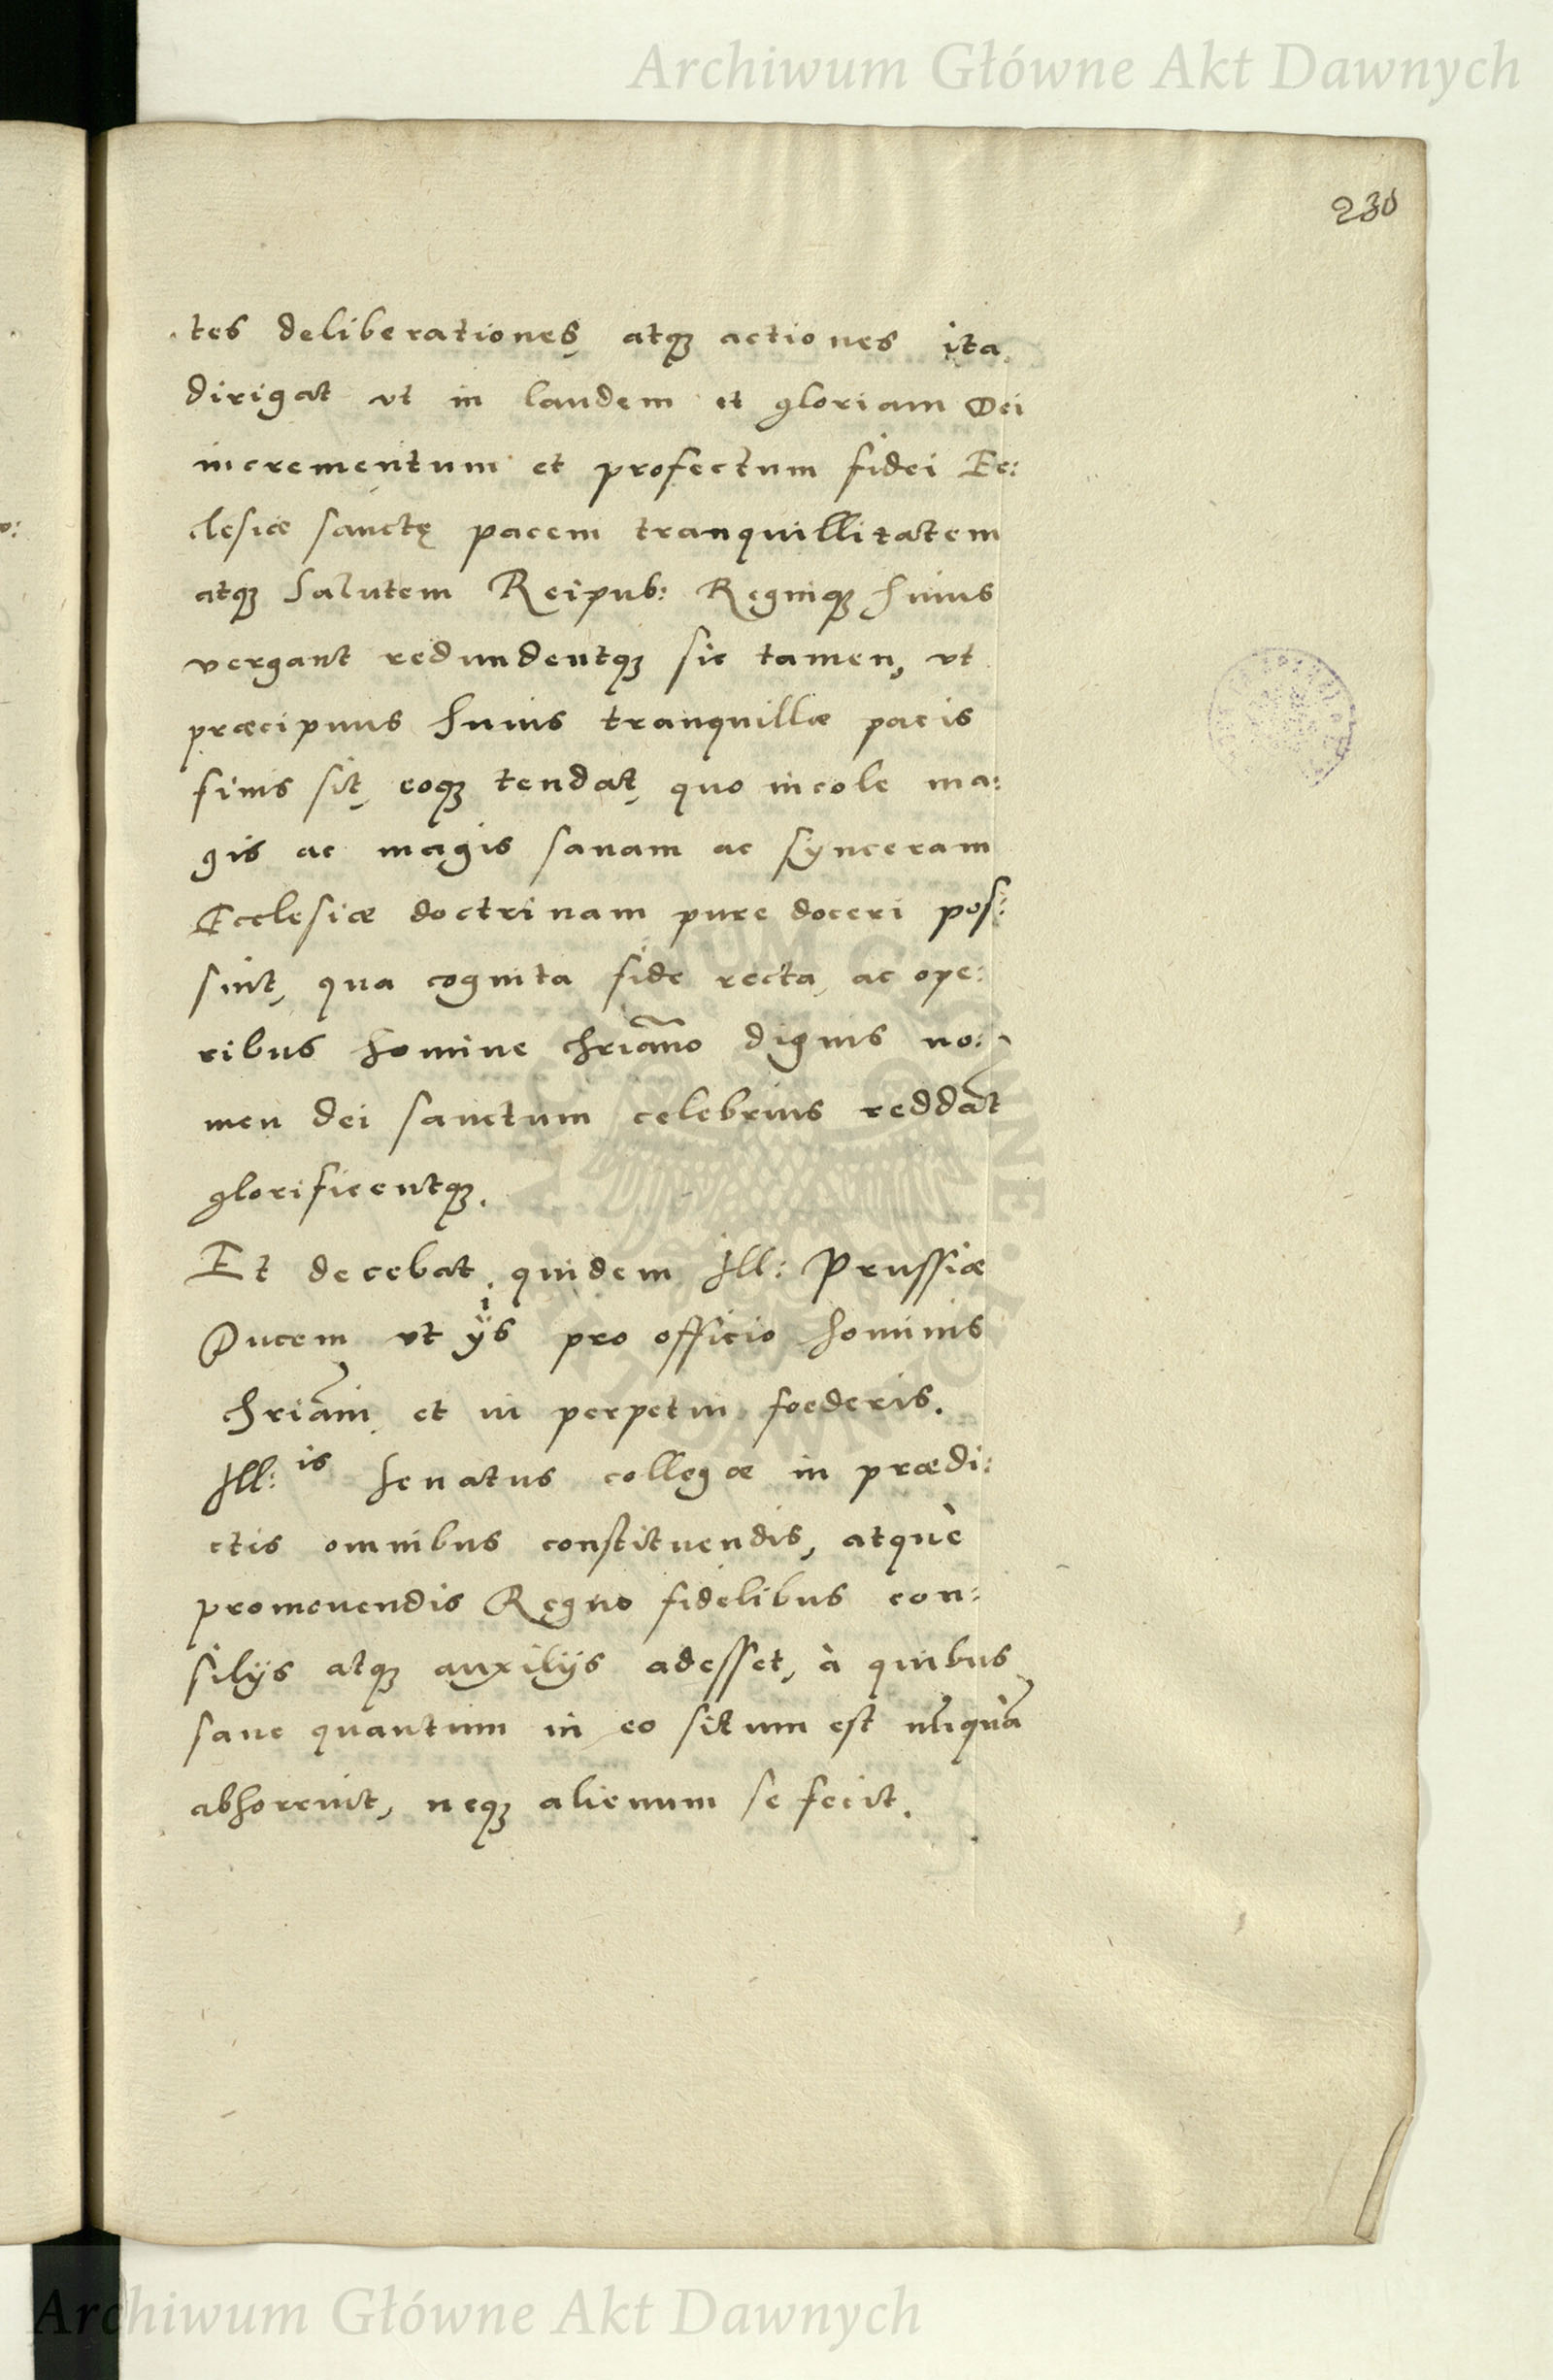 Archiwum Główne Akt Dawnych
230
tes deliberationes, atqꝫ actiones ita
dirigat vt in laudem et gloriam Dei
incrementum et profectum fidei Ec:
clesiæ sanctę pacem tranquillitatem
atqꝫ salutem Reipub: Regniqꝫ huius
vergant redundentqꝫ sic tamen, vt
præcipuus huius tranquillæ pacis
finis sit, eoqꝫ tendat, quo incole ma:
gis ac magis sanam ac synceram
Ecclesiæ doctrinam pure doceri pos:
sint, qua cognita fide recta, ac ope:
ribus homine chriãno dignis no:
men dei sanctum celebrius reddãt
glorificentqꝫ.
Et decebat, quidem Ill: Prussiæ
Ducem vt ijs pro officio hominis
chriãni, et in perpetui foederis.
Ill:is senatus collegæ in prædi:
ctis omnibus constituendis, atquè
promouendis Regno fidelibus con:
silijs atqꝫ auxilijs adesset, à quibus
sane quantum in eo situm est nũquã
abhorruit, neqꝫ alienum se fecit.
Archiwum Główne Akt Dawnych